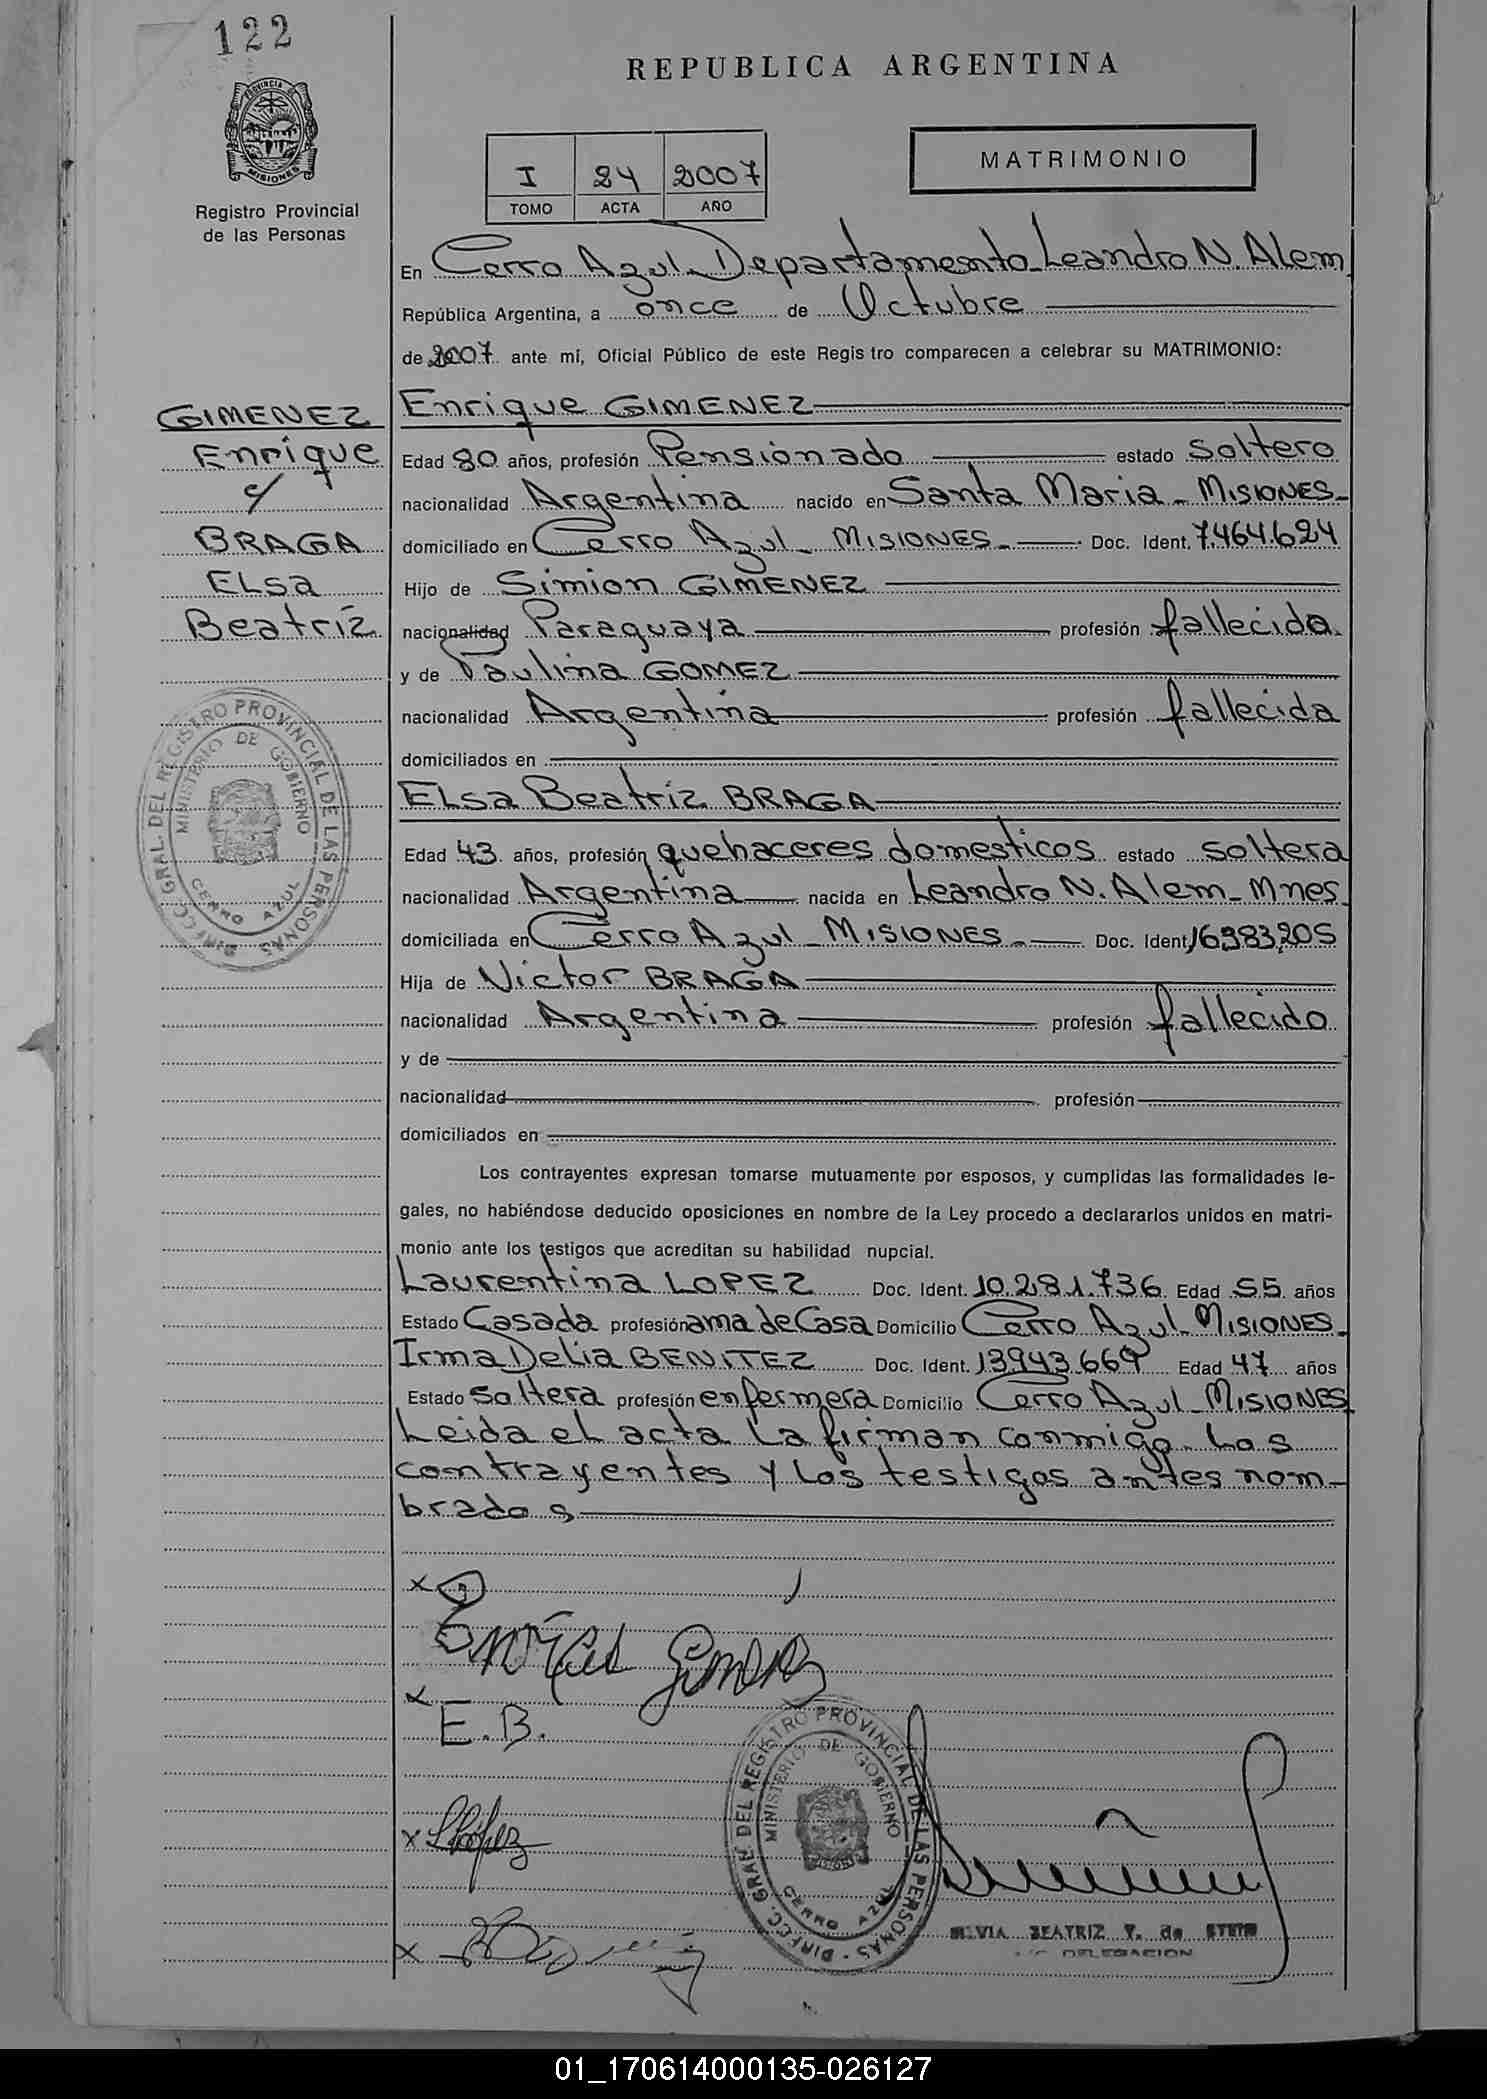 122
REPUBLICA ARGENTINA
PROVINCIA DE
MISIONES
Registro Provincial
de las Personas
I 24 2007
TOMO ACTA AÑO
MATRIMONIO
En Cerro Azul-Departamento-Leandro N. Alem
República Argentina, a once de Octubre
de 2007 ante mí, Oficial Público de este Regis tro comparecen a celebrar su MATRIMONIO:
GIMENEZ
Enrique
c/
BRAGA
ELsa
Beatriz
Enrique GIMENEZ
Edad 80 años, profesión Pensionado estado Soltero
nacionalidad Argentina nacido en Santa Maria - MISIONES-
domiciliado en Cerro Azul - MISIONES- Doc. Ident. 7.464.624
Hijo de Simion GIMENEZ
nacionalidad Paraguaya profesión fallecido
y de Paulina GOMEZ
nacionalidad Argentina profesión fallecida
domiciliados en
ELsa Beatriz BRAGA
Edad 43 años, profesión quehaceres domesticos estado soltera
nacionalidad Argentina nacida en Leandro N. Alem - Mnes
domiciliada en Cerro Azul - MISIONES- Doc. Ident. 16983205
Hija de Victor BRAGA
nacionalidad Argentina profesión fallecido
y de
nacionalidad profesión
domiciliados en
Los contrayentes expresan tomarse mutuamente por esposos, y cumplidas las formalidades le-
gales, no habiéndose deducido oposiciones en nombre de la Ley procedo a declararlos unidos en matri-
monio ante los testigos que acreditan su habilidad nupcial.
Laurentina LOPEZ Doc. Ident. 10.281.736 Edad 55 años
Estado Casada profesión ama de Casa Domicilio Cerro Azul - MISIONES-
Irma Delia BENITEZ Doc. Ident. 13943.669 Edad 47 años
Estado soltera profesión enfermera Domicilio Cerro Azul - MISIONES
Leida el acta La firman conmigo Los
contrayentes y Los testigos antes nom-
brados
DIRECC. GRAL. DEL REGISTRO PROVINCIAL DE LAS PERSONAS
MINISTERIO DE GOBIERNO
CERRO AZUL
x
x
E.B.
x LLópez
x
DIRECC. GRAL. DEL REGISTRO PROVINCIAL DE LAS PERSONAS
MINISTERIO DE GOBIERNO
CERRO AZUL
SILVIA BEATRIZ de
DELEGACION
01_170614000135-026127